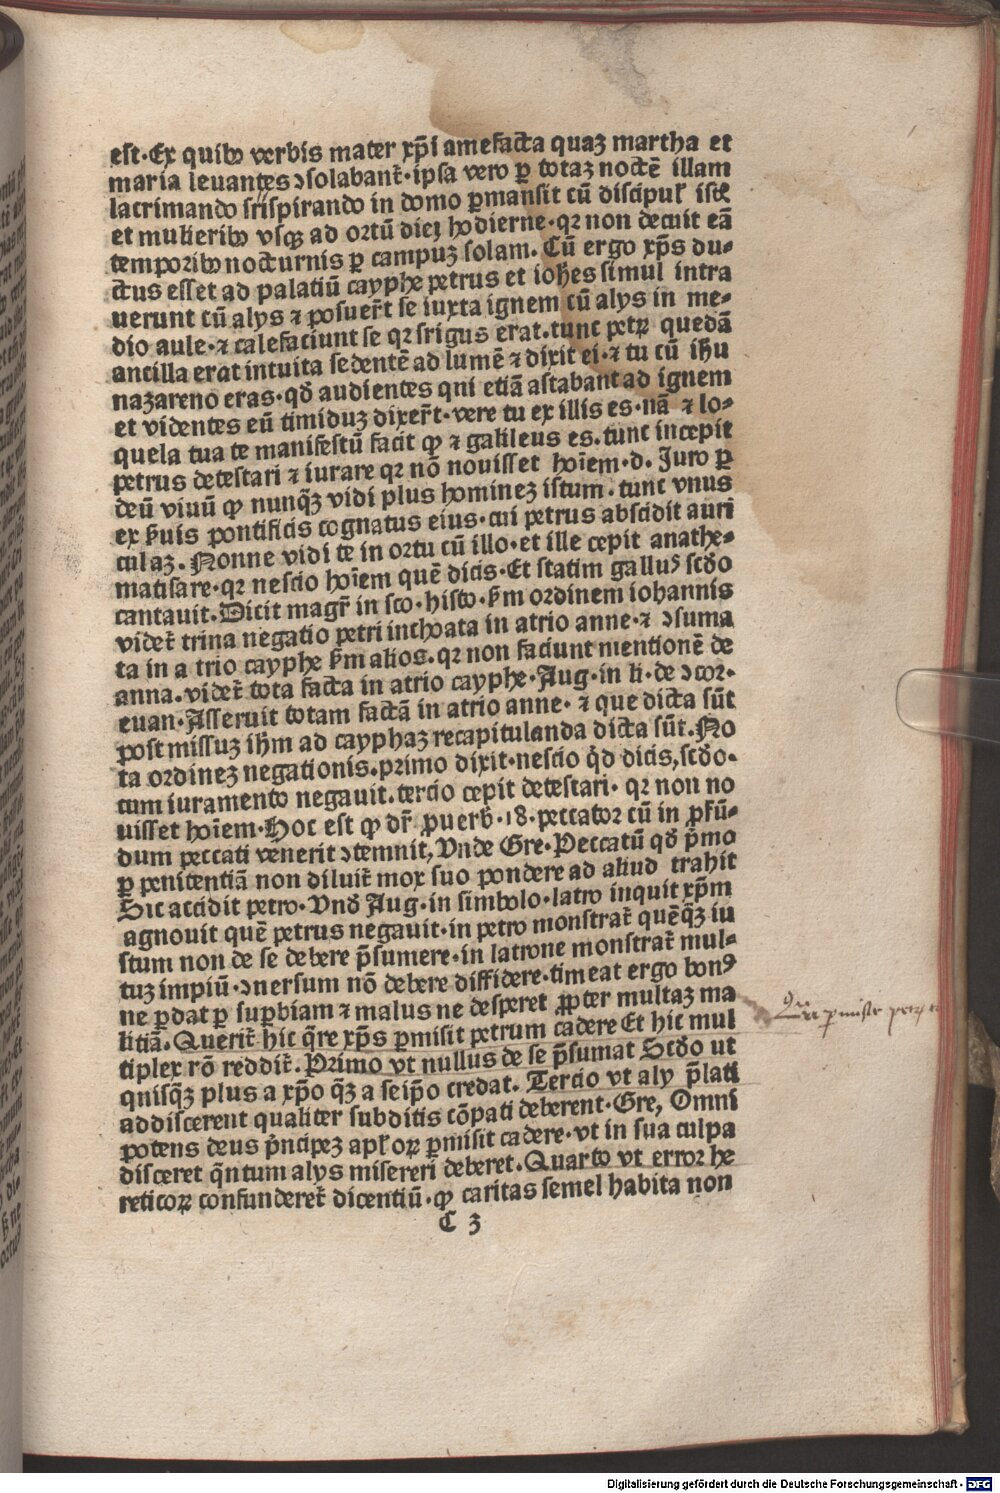 est·Ex quibꝫ verbis mater xp̄i amefacta quaꝫ martha et
maria levantes ɔsolabant᷑·ipsa vero ꝑ totaꝫ noctē illam
lacrimando srispirando in domo ꝑmansit cū discipul᷑
et mulieribꝫ vsqꝫ ad ortū diei hodierne·qꝛ non decuit eā
temporibꝫ nocturnis ꝑ campuꝫ solam. Cū ergo xp̄s du-
ctus esset ad palatiū cayphe petrus et ioh̄es simul intra
uerunt cū alys ⁊ posuer̄t se iuxta ignem cū alys in me-
dio aule·⁊ calefaciunt se qꝛ frigus erat.tunc petrꝰ quedā
ancilla erat intuita sedentē ad lumē ⁊ dixit ei·⁊ tu cū ih̄u
nazareno eras·qđ audientes qui etiā astabant ad ignem
et videntes eū timiduꝫ dixer̄t·vere tu ex illis es·nā ⁊ lo-
quela tua te manifestū facit ꝙ ⁊ galileus es.tunc incepit
petrus detestari ⁊ iurare qꝛ nō novisset hoīem·d. Juro ꝑ
deū viuū ꝙ nunqꝫ vidi plus homineꝫ istum·tunc vnus
ex s̄uis pontificis cognatus eius·cui petrus abscidit auri
culaꝫ. Nonne vidi te in ortu cū illo·et ille cepit anathe-
matisare·qꝛ nescio hoīem quē dicis·Et statim gallus scđo
cantauit.Dicit magr̄ in sco·histo·s̄m ordinem iohannis
videt᷑ trina negatio petri inchoata in atrio anne·⁊ ɔsuma
ta in a trio cayphe s̄m alios.qꝛ non faciunt mentionē de
anna.videt᷑ tota facta in atrio cayphe·Aug·in li·de ɔcor·
euan·Asseruit totam factā in atrio anne·⁊ que dicta sūt
post missuꝫ ih̄m ad cayphaꝫ recapitulanda dicta sūt.No
ta ordineꝫ negationis.primo dixit·nescio qđ dicis,scđo·
cum iuramento negauit.tercio cepit detestari·qꝛ non no
uisset hoīem·Hoc est ꝙ dr̄ ꝓuerb̄·18·peccator cū in ꝓfū-
dum peccati venerit ɔtemnit,Vnde Gre·Peccatū qđ p̄mo
ꝑ penitentiā non diluit᷑ mox suo pondere ad aliud trahit
Sic accidit petro·Vnđ Aug·in simbolo·latro inquit xp̄m
agnouit quē petrus negauit·in petro monstrat᷑ quēqꝫ iu
stum non de se debere p̄sumere·in latrone monstrat᷑ mul-
tuꝫ impiū·ɔuersum nō debere diffidere·timeat ergo bonꝰ
ne ꝑdat ꝑ suꝑbiam ⁊ malus ne desperet ꝓpter multaꝫ ma
litiā.Querit᷑ hic q̄re xp̄s ꝑmisit petrum cadere Et hic mul
tiplex rō reddit᷑.Primo vt nullus de se p̄sumat Scđo ut
quisqꝫ plus a xp̄o qꝫ a seip̄o credat. Tercio vt aly p̄lati
addiscerent qualiter subditis cōpati deberent·Gre, Omni
potens deus p̄ncipeꝫ apl᷑oꝝ ꝑmisit cadere·vt in sua culpa
disceret q̄ntum alys misereri deberet.Quarto vt error he
reticoꝝ confunderet᷑ dicentiū·ꝙ caritas semel habita non
C 3
Digitalisierung gefördert durch die Deutsche Forschungsgemeinschaft · DFG